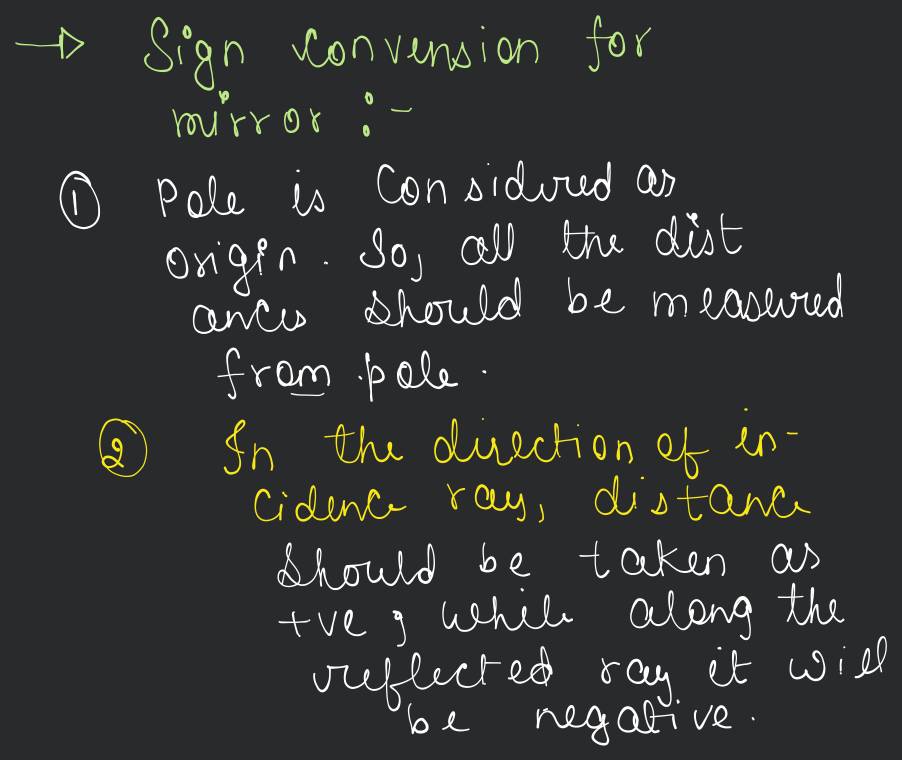 → Sign convension for
mirror :-
① Pole is Considered as
origin. So, all the dist
ances should be measured
from pole.
② In the direction of in-
cidence ray, distance
should be taken as
+ve ; while along the
reflected ray it will
be negative.